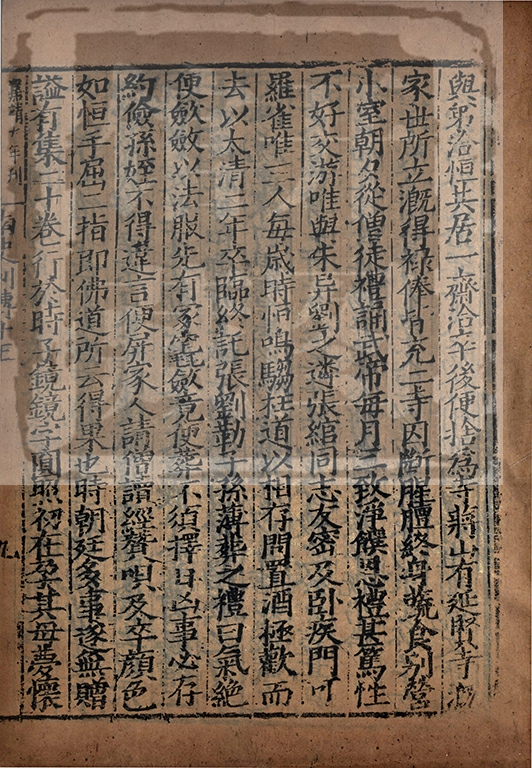 與弟洽恒共居一齋洽卒後便捨爲寺蔣山有延賢寺溉
家世所立溉得祿俸皆充二寺因斷腥膻終身蔬食别營
小室朝夕從僧徒禮誦武帝每月三致淨饌恩禮甚篤性
不好交游唯與朱异劉之遴張綰同志友密及卧疾門可
羅雀唯三人每歲時恒鳴騶枉道以相存問置酒極歡而
去以太清二年卒臨終託張劉勒子孫薄葬之禮曰氣絶
便斂斂以法服先有冢竁斂竟便葬不須擇日凶事必存
約儉孫姪不得違言便屏家人請僧讀經贊唄及卒顔色
如恒手屈二指即佛道所云得果也時朝廷多事遂無贈
謚有集二十卷行於時子鏡鏡字圓照初在孕其母夢懷
嘉靖十年刊